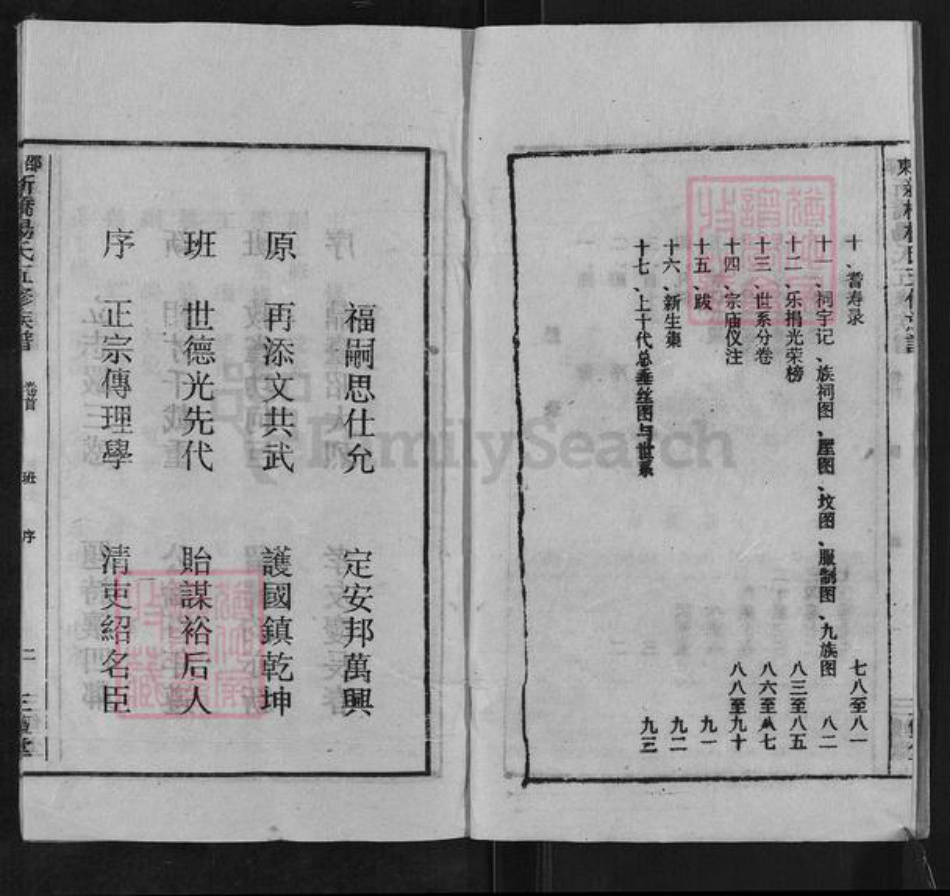 十、耆寿录 七八至八一
十一、祠宇记、族祠图、屋图、坟图、服制图、九族图 八二
十二、乐捐光荣榜 八三至八五
十三、世系分卷 八六至八七
十四、宗庙仪注 八八至九十
十五、跋 九一
十六、新生 九二
十七、上十代总垂丝图与世系 九三
福嗣思仕允 定安邦萬興
原 再添文共武 護國鎮乾坤
班 世德光先代 貽謀裕后人
序 正宗傳理學 清吏紹名臣
楊氏五修族譜 卷首 班序 二
FamilySearch